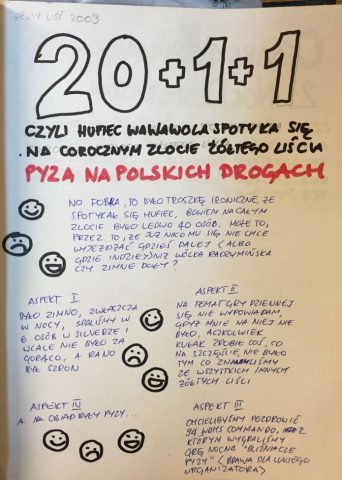 ŻÓŁTY LIŚĆ 2003
20+1+1
CZYLI HUFIEC WAWAWOLA SPOTYKA SIĘ
NA COROCZNYM ZLOCIE ŻÓŁTEGO LIŚCIA
PYZA NA POLSKICH DROGACH
NO DOBRA, TO BYŁO TROSZKĘ IRONICZNE, ŻE
SPOTYKAŁ SIĘ HUFIEC, BOWIEM NA CAŁYM
ZLOCIE BYŁO LEDWO 40 OSÓB. MOŻE TO,
PRZEZ TO, ŻE JUŻ NIKOMU SIĘ NIE CHCE
WYJEŻDŻAĆ GDZIEŚ DALEJ (ALBO
GDZIE INDZIEJ) NIŻ WÓLKA RADZYMIŃSKA
CZY ZIMNE DOŁY?
ASPEKT I
BYŁO ZIMNO, ZWŁASZCZA
W NOCY, SPALIŚMY W
6 OSÓB W SILVERZE I
WCALE NIE BYŁO ZA
GORĄCO, A RANO
BYŁ SZRON
ASPEKT II
NA TEMAT GRY DZIENNEJ
SIĘ NIE WYPOWIADAM,
GDYŻ MNIE NA NIEJ NIE
BYŁO, ACZKOLWIEK
KUŁAK ZROBIŁ COŚ, CO
NA SZCZĘŚCIE NIE BYŁO
TYM CO ZNALIŚMY
ZE WSZYSTKICH INNYCH
ŻÓŁTYCH LIŚCI
ASPEKT IV
A NA OBIAD BYŁY PYZY...
ASPEKT III
CHCIELIBYŚMY POZDROWIĆ
94 WDHS COMMANDO, Z
KTÓRYM WYGRALIŚMY
GRĘ NOCNĄ "BLIŹNIACZE
PYZY" (BRAWA DLA LUKIEGO
ORGANIZATORA)